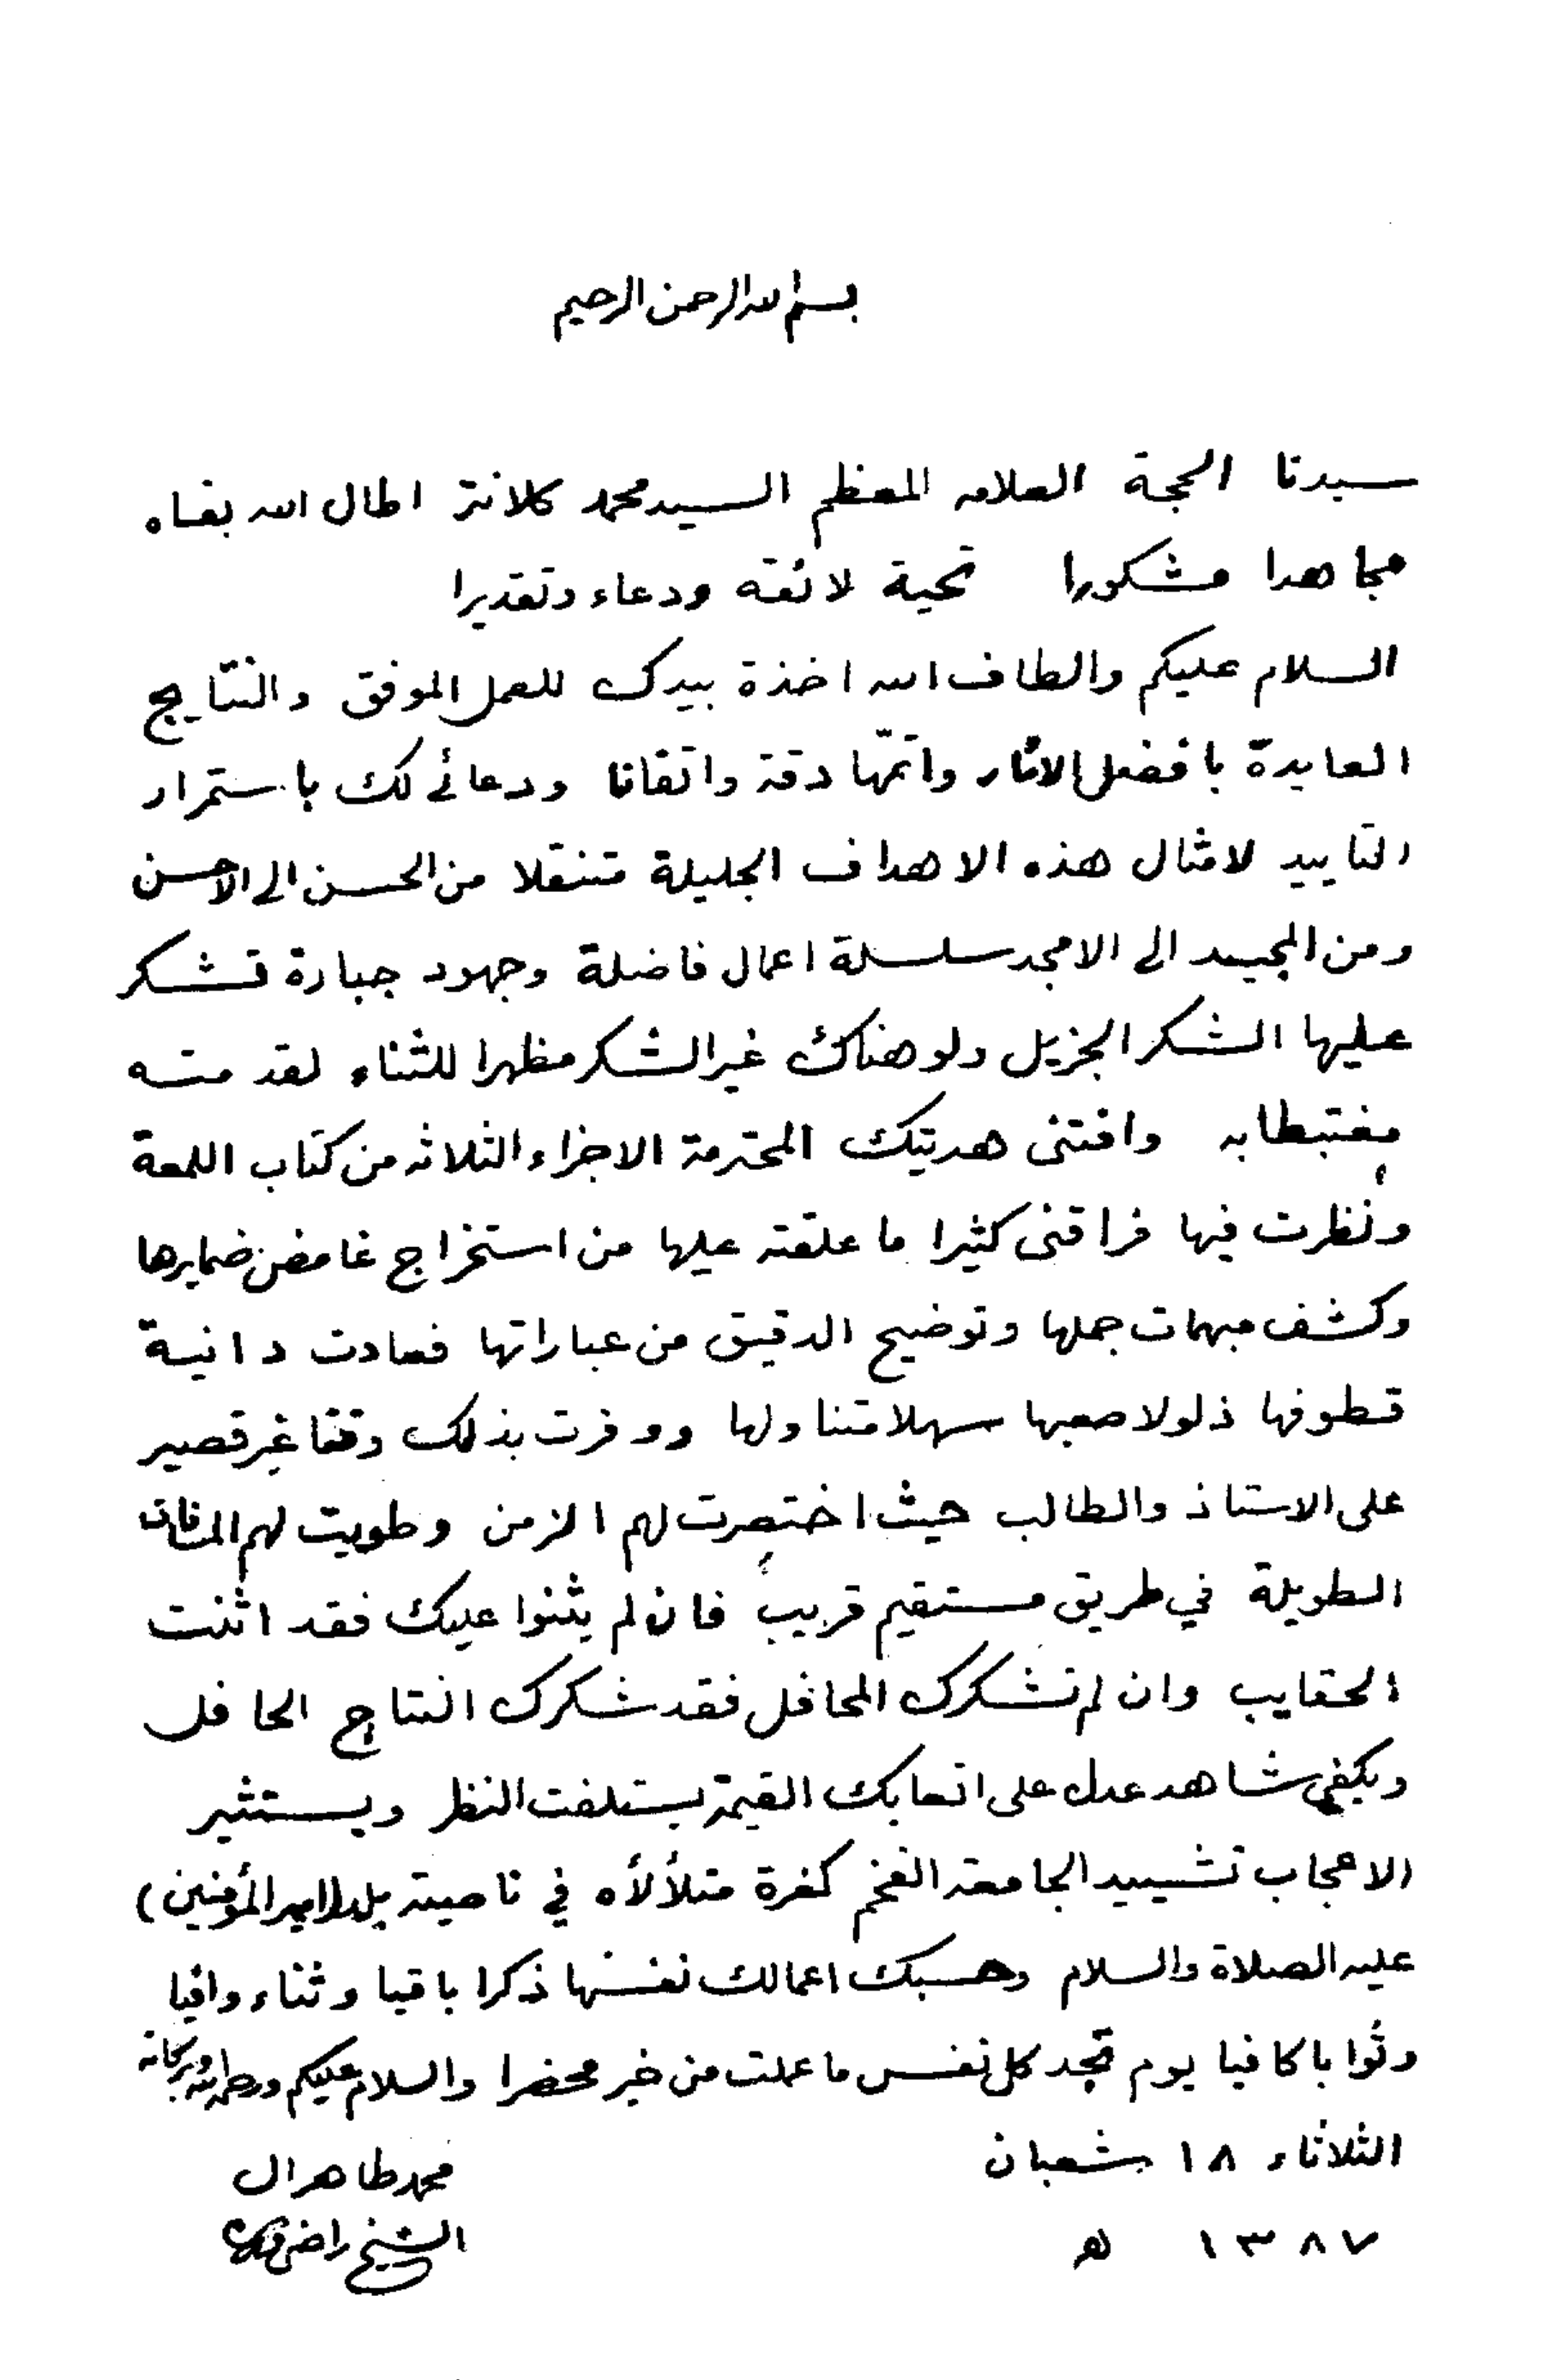 بسم الله الرحمن الرحيم
سيدنا الحجة العلامه المعظم السيد محمد كلانتر اطال الله بقاه
مجاهدا مشكورا تحية لائقه ودعاء وتقديرا
السلام عليكم والطاف الله اخذة بيدك للعمل الموفق والنتايج
العايدة بافضل الاثار واتمّها دقة واتقانا ودعائى لك باستمرار
التاييد لامثال هذه الاهداف الجليلة متنقلا من الحسن الى الاحسن
ومن المجيد الى الامجد سلسلة اعمال فاضلة وجهود جبارة تشكر
عليها الشكر الجزيل ولو هناك غير الشكر مظهرا للثناء لقد مته
مغتبطا به وافتنى هديتك المحترمة الاجزاء الثلاثه من كتاب اللمعة
ونظرت فيها فراقنى كثيرا ما علقته عليها من استخراج غامض ضمايرها
وكشف مبهمات جملها وتوضيح الدقيق من عباراتها فعادت دانية
قطوفها ذلولا صعبها سهلا متناولها ووفرت بذلك وقتا غير قصير
على الاستاذ والطالب حيث اختصرت لهم الزمن وطويت لهم المسافات
الطويلة في طريق مستقيم قريب فان لم يثنوا عليك فقد اثنت
الحقايب وان لم تشكرك المحافل فقد شكرك النتاج الحافل
ويكفي شاهد عدل على اتعابك القيمة يستلفت النظر ويستثير
الاعجاب تشييد الجامعة الفخم كغرة متلألأه في ناصية بلد (امير المؤمنين)
عليه الصلاة والسلام وحسبك اعمالك نفسها ذكرا باقيا وثناء وافيا
وثوابا كافيا يوم تجد كل نفس ما عملت من خير محضرا والسلام عليكم ورحمة الله وبركاته
الثلاثاء ١٨ شعبان
محمد طاهر ال
١٣٨٧ هـ
الشيخ راضي